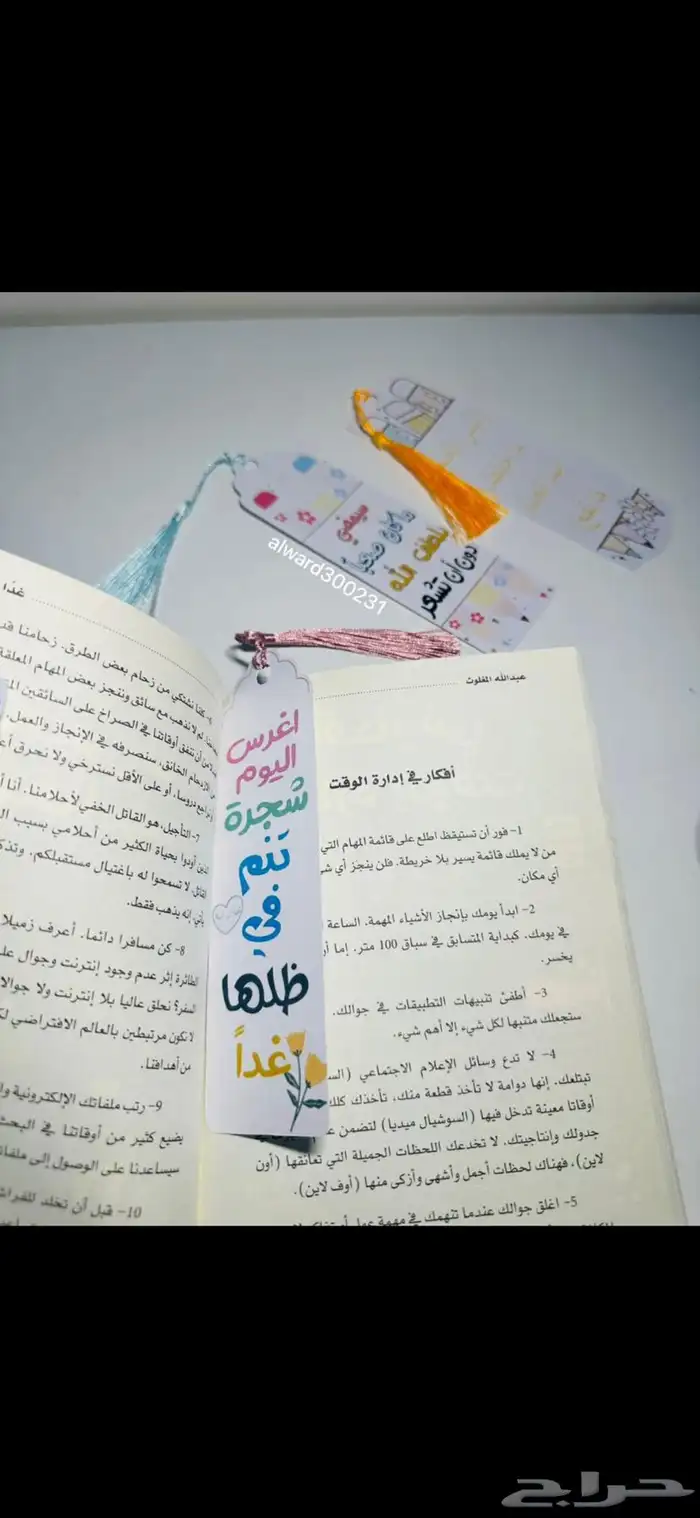 سيمضي
ما كان صعبًا
بلطف الله
دون أن تشعر
alward300231
اغرس
اليوم
شجرة
تنم
في
ظلها
غداً
عبدالله المغلوث
أفكار في إدارة الوقت
1- فور أن تستيقظ اطلع على قائمة المهام التي
من لا يملك قائمة يسير بلا خريطة. فلن ينجز أي
أي مكان.
2- ابدأ يومك بإنجاز الأشياء المهمة. الساعة
في يومك. كبداية المتسابق في سباق 100 متر. إما
يخسر.
3- أطفئ تنبيهات التطبيقات في جوالك.
ستجعلك متنبها لكل شيء إلا أهم شيء.
4- لا تدع وسائل الإعلام الاجتماعي
تبتلعك. إنها دوامة لا تأخذ قطعة منك، تأخذك كلك
أوقاتا معينة تدخل فيها (السوشيال ميديا) لتضمن
جدولك وإنتاجيتك. لا تخدعك اللحظات الجميلة التي تعانقها (أون
لاين)، فهناك لحظات أجمل وأشهى وأزكى منها (أوف لاين).
5- اغلق جوالك عندما تنهمك في مهمة
غدًا
كلنا نشتكي من زحام بعض الطرق. زحامنا
لم لا نذهب مع سائق وننجز بعض المهام المعلقة
من أن ننفق أوقاتنا في الصراخ على السائقين
الازدحام الخانق، سنصرفه في الإنجاز والعمل.
دروسا، أو على الأقل نسترخي ولا نحرق
7- التأجيل، هو القاتل الخفي لأحلامنا. أنا
أودوا بحياة الكثير من أحلامي بسبب
لا تسمحوا له باغتيال مستقبلكم.
يأتي. إنه يذهب فقط.
8- كن مسافرا دائما. أعرف زميلا
الطائرة إثر عدم وجود إنترنت وجوال
السفر؟ نحلق عاليا بلا إنترنت ولا
لا نكون مرتبطين بالعالم الافتراضي
من أهدافنا.
9- رتب ملفاتك الإلكترونية
يضيع كثير من أوقاتنا في البحث
سيساعدنا على الوصول إلى
10- قبل أن تخلد للفراش
حراج